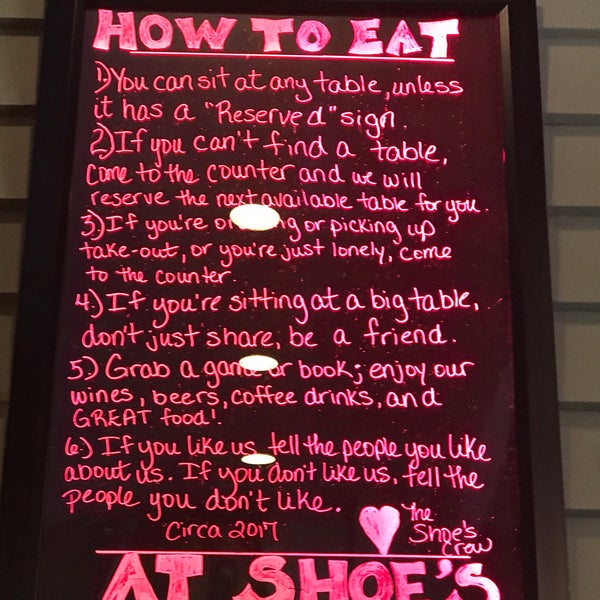 HOW TO EAT
1.) You can sit at any table, unless
it has a "Reserved" sign.
2.) If you can't find a table,
come to the counter and we will
reserve the next available table for you.
3.) If you're or picking up
take-out, or you're just lonely, come
to the counter.
4.) If you're sitting at a big table,
don't just share, be a friend.
5.) Grab a game or book; enjoy our
wines, beers, coffee drinks, and
GREAT food!
6.) If you like us, tell the people you like
about us. If you don't like us, tell the
people you don't like.
Circa 2017
The
Shoe's
Crew
AT SHOE'S